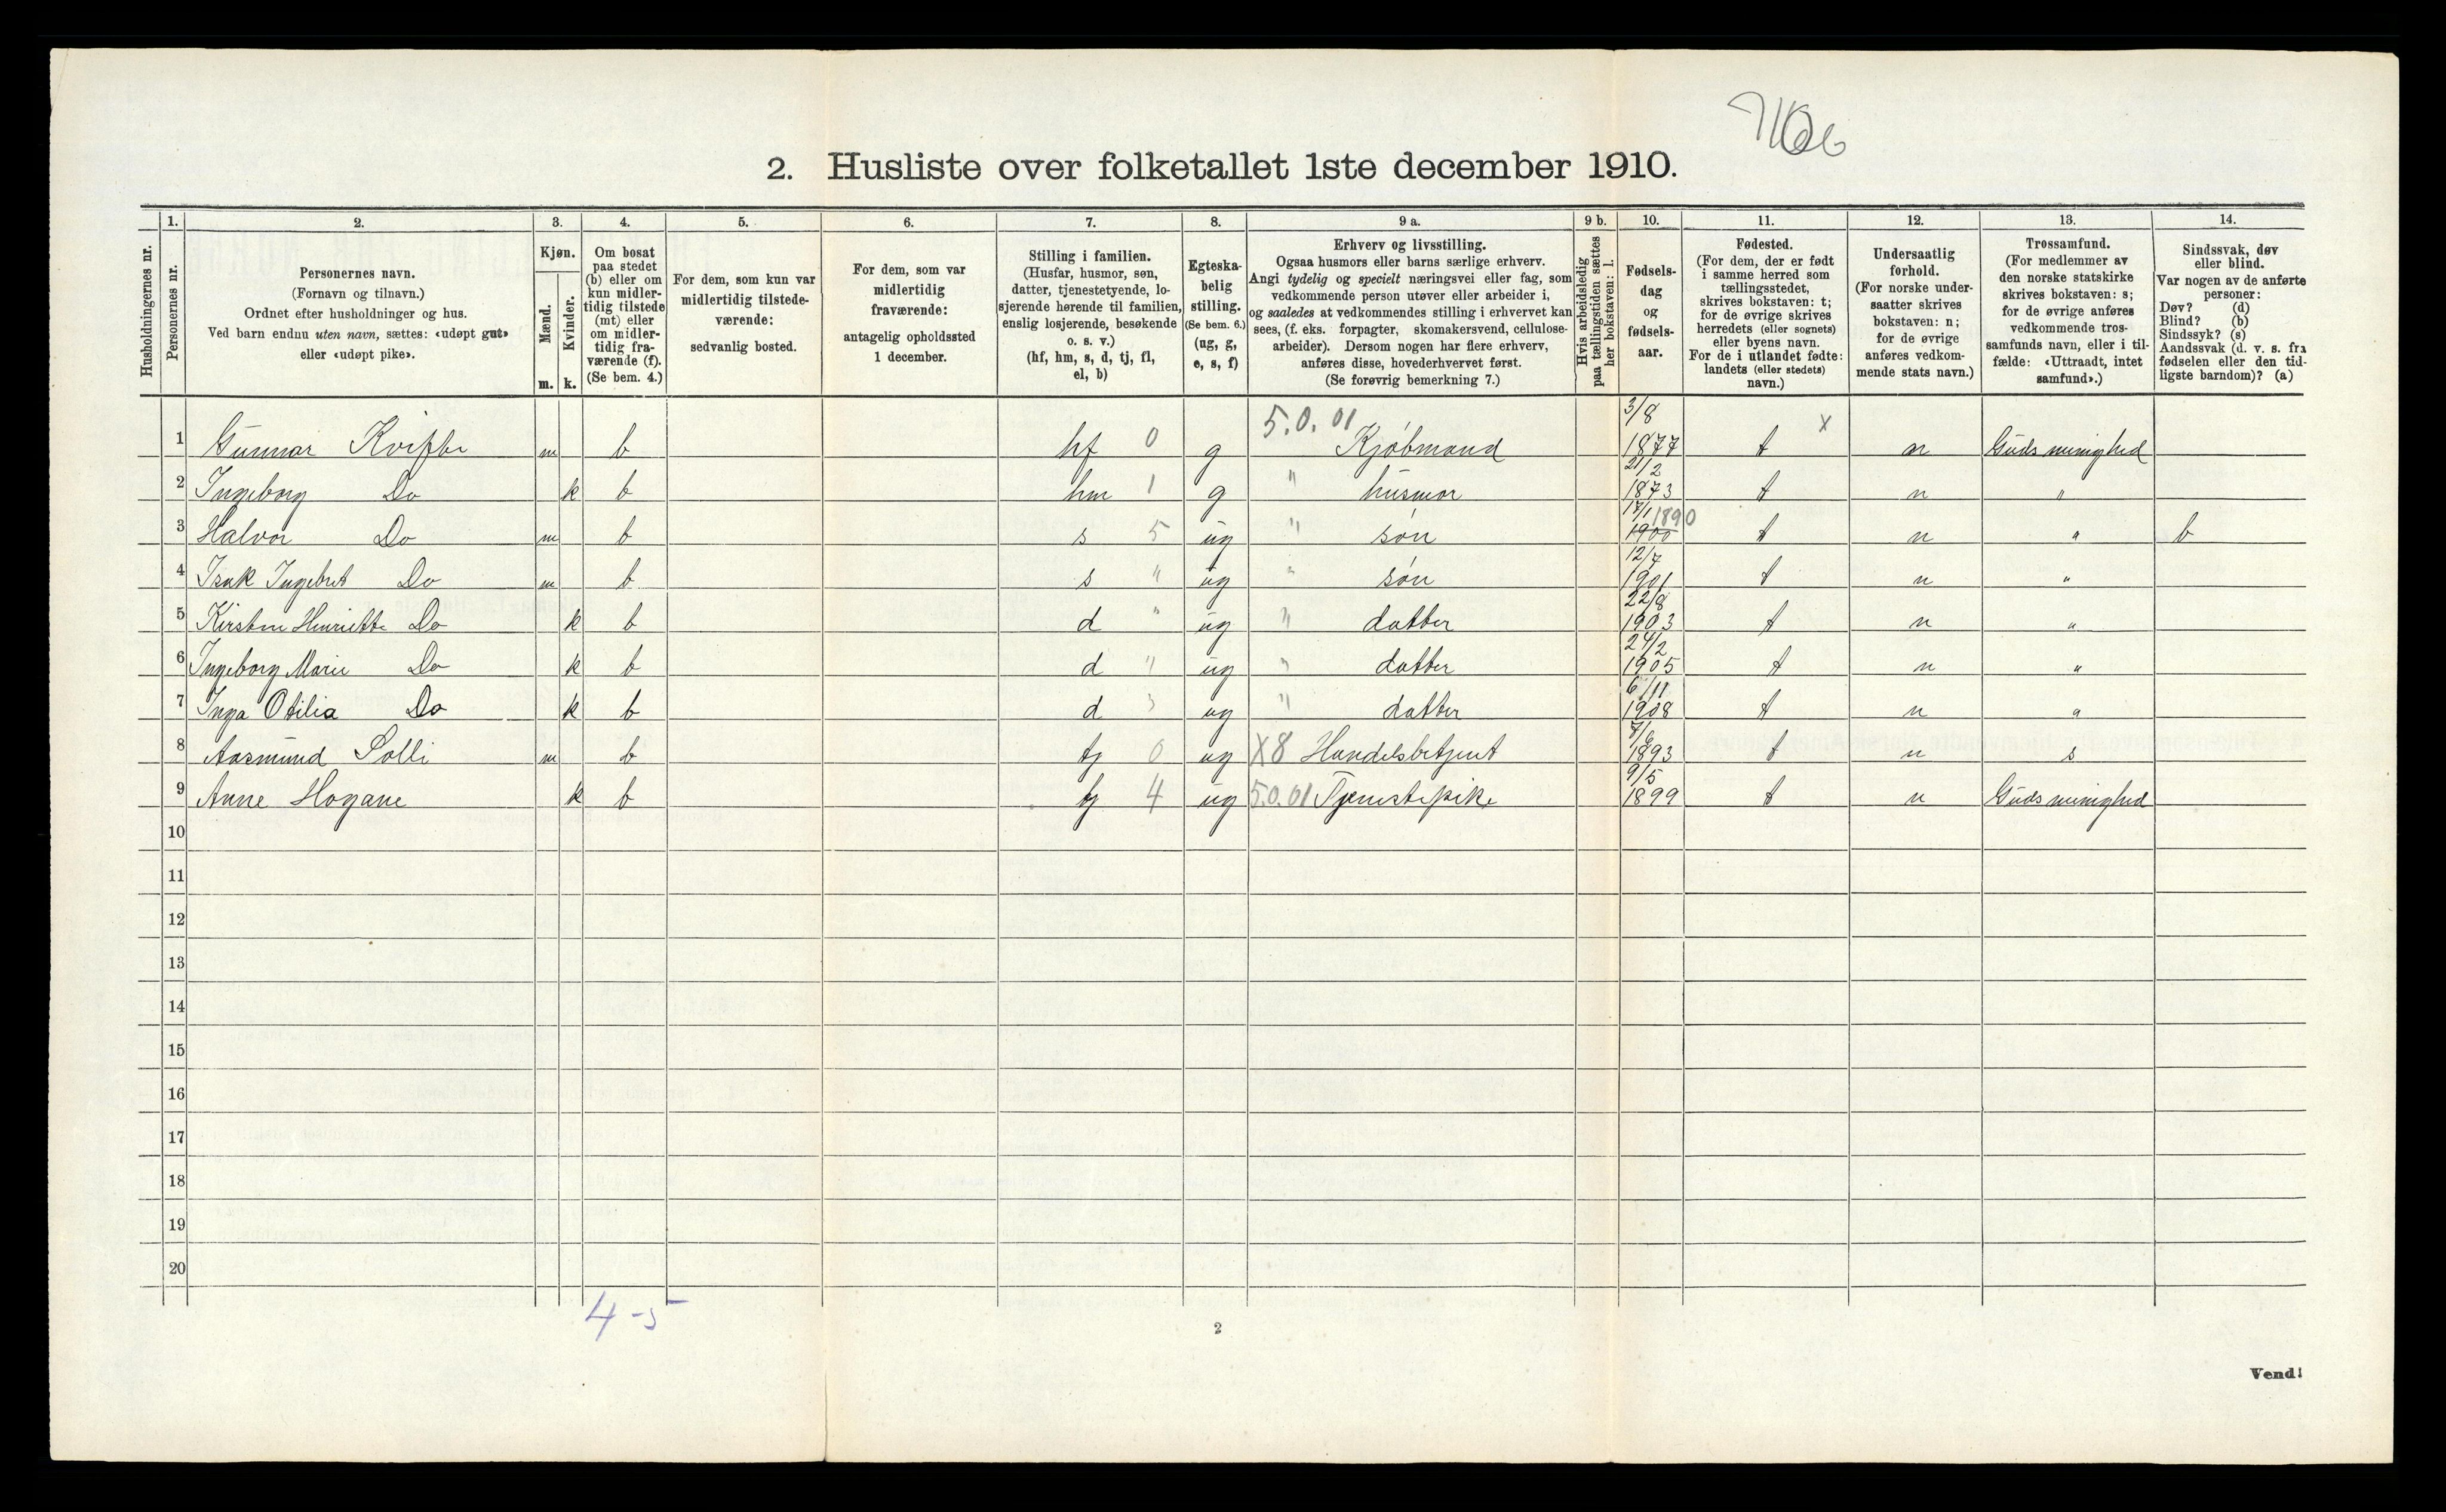 2. Husliste over folketallet 1ste december 1910.
Husholdningernes nr.
1.
Personernes nr.
2.
Personernes navn.
(Fornavn og tilnavn.)
Ordnet efter husholdninger og hus.
Ved barn endnu uten navn, sættes: «udøpt gut»
eller «udøpt pike».
3.
Kjøn.
Mænd.
Kvinder.
m. k.
4.
Om bosat
paa stedet
(b) eller om
kun midler-
tidig tilstede
(mt) eller
om midler-
tidig fra-
værende (f).
(Se bem. 4.)
5.
For dem, som kun var
midlertidig tilstede-
værende:
sedvanlig bosted.
6.
For dem, som var
midlertidig
fraværende:
antagelig opholdssted
1 december.
7.
Stilling i familien.
(Husfar, husmor, søn,
datter, tjenestetyende, lo-
sjerende hørende til familien,
enslig losjerende, besøkende
o. s. v.)
(hf, hm, s, d, tj, fl,
el, b)
8.
Egteska-
belig
stilling.
(Se bem. 6.)
(ug, g,
e, s, f)
9 a.
Erhverv og livsstilling.
Ogsaa husmors eller barns særlige erhverv.
Angi tydelig og specielt næringsvei eller fag, som
vedkommende person utøver eller arbeider i,
og saaledes at vedkommendes stilling i erhvervet kan
sees, (f. eks. forpagter, skomakersvend, cellulose-
arbeider). Dersom nogen har flere erhverv,
anføres disse, hovederhvervet først.
(Se forøvrig bemerkning 7.)
9 b.
Hvis arbeidsledig
paa tællingstiden sættes
her bokstaven: l.
10.
Fødsels-
dag
og
fødsels-
aar.
11.
Fødested.
(For dem, der er født
i samme herred som
tællingsstedet,
skrives bokstaven: t;
for de øvrige skrives
herredets (eller sognets)
eller byens navn.
For de i utlandet fødte:
landets (eller stedets)
navn.)
12.
Undersaatlig
forhold.
(For norske under-
saatter skrives
bokstaven: n;
for de øvrige
anføres vedkom-
mende stats navn.)
13.
Trossamfund.
(For medlemmer av
den norske statskirke
skrives bokstaven: s;
for de øvrige anføres
vedkommende tros-
samfunds navn, eller i til-
fælde: «Uttraadt, intet
samfund».)
14.
Sindssvak, døv
eller blind.
Var nogen av de anførte
personer:
Døv? (d)
Blind? (b)
Sindssyk? (s)
Aandssvak (d. v. s. fra
fødselen eller den tid-
ligste barndom)? (a)
1 Gunnar m b hf 0 g 5.0.01 Kjøbmand 3/8 1877 t x n Guds menighed
2 Ingeborg Do k b hm 1 g " husmor 21/2 1873 t n "
3 Halvor Do m b s 5 ug " søn 17/1 1900 1890 t n " b
4 Isak Ingebret Do m b s " ug " søn 12/7 1901 t n "
5 Kirsten Henriette Do k b d " ug " datter 22/8 1903 t n "
6 Ingeborg Marie Do k b d " ug " datter 24/2 1905 t n "
7 Inga Otilia Do k b d " ug " datter 6/11 1908 t n "
8 Aasmund Solli m b tj 0 ug X8 Handelsbetjent 7/6 1893 t n s
9 Anne Hogane k b tj 4 ug 5.0.01 Tjenestepike 9/5 1899 t n Guds menighed
10
11
12
13
14
15
16
17
18
19
20
4-5
2
Vend!